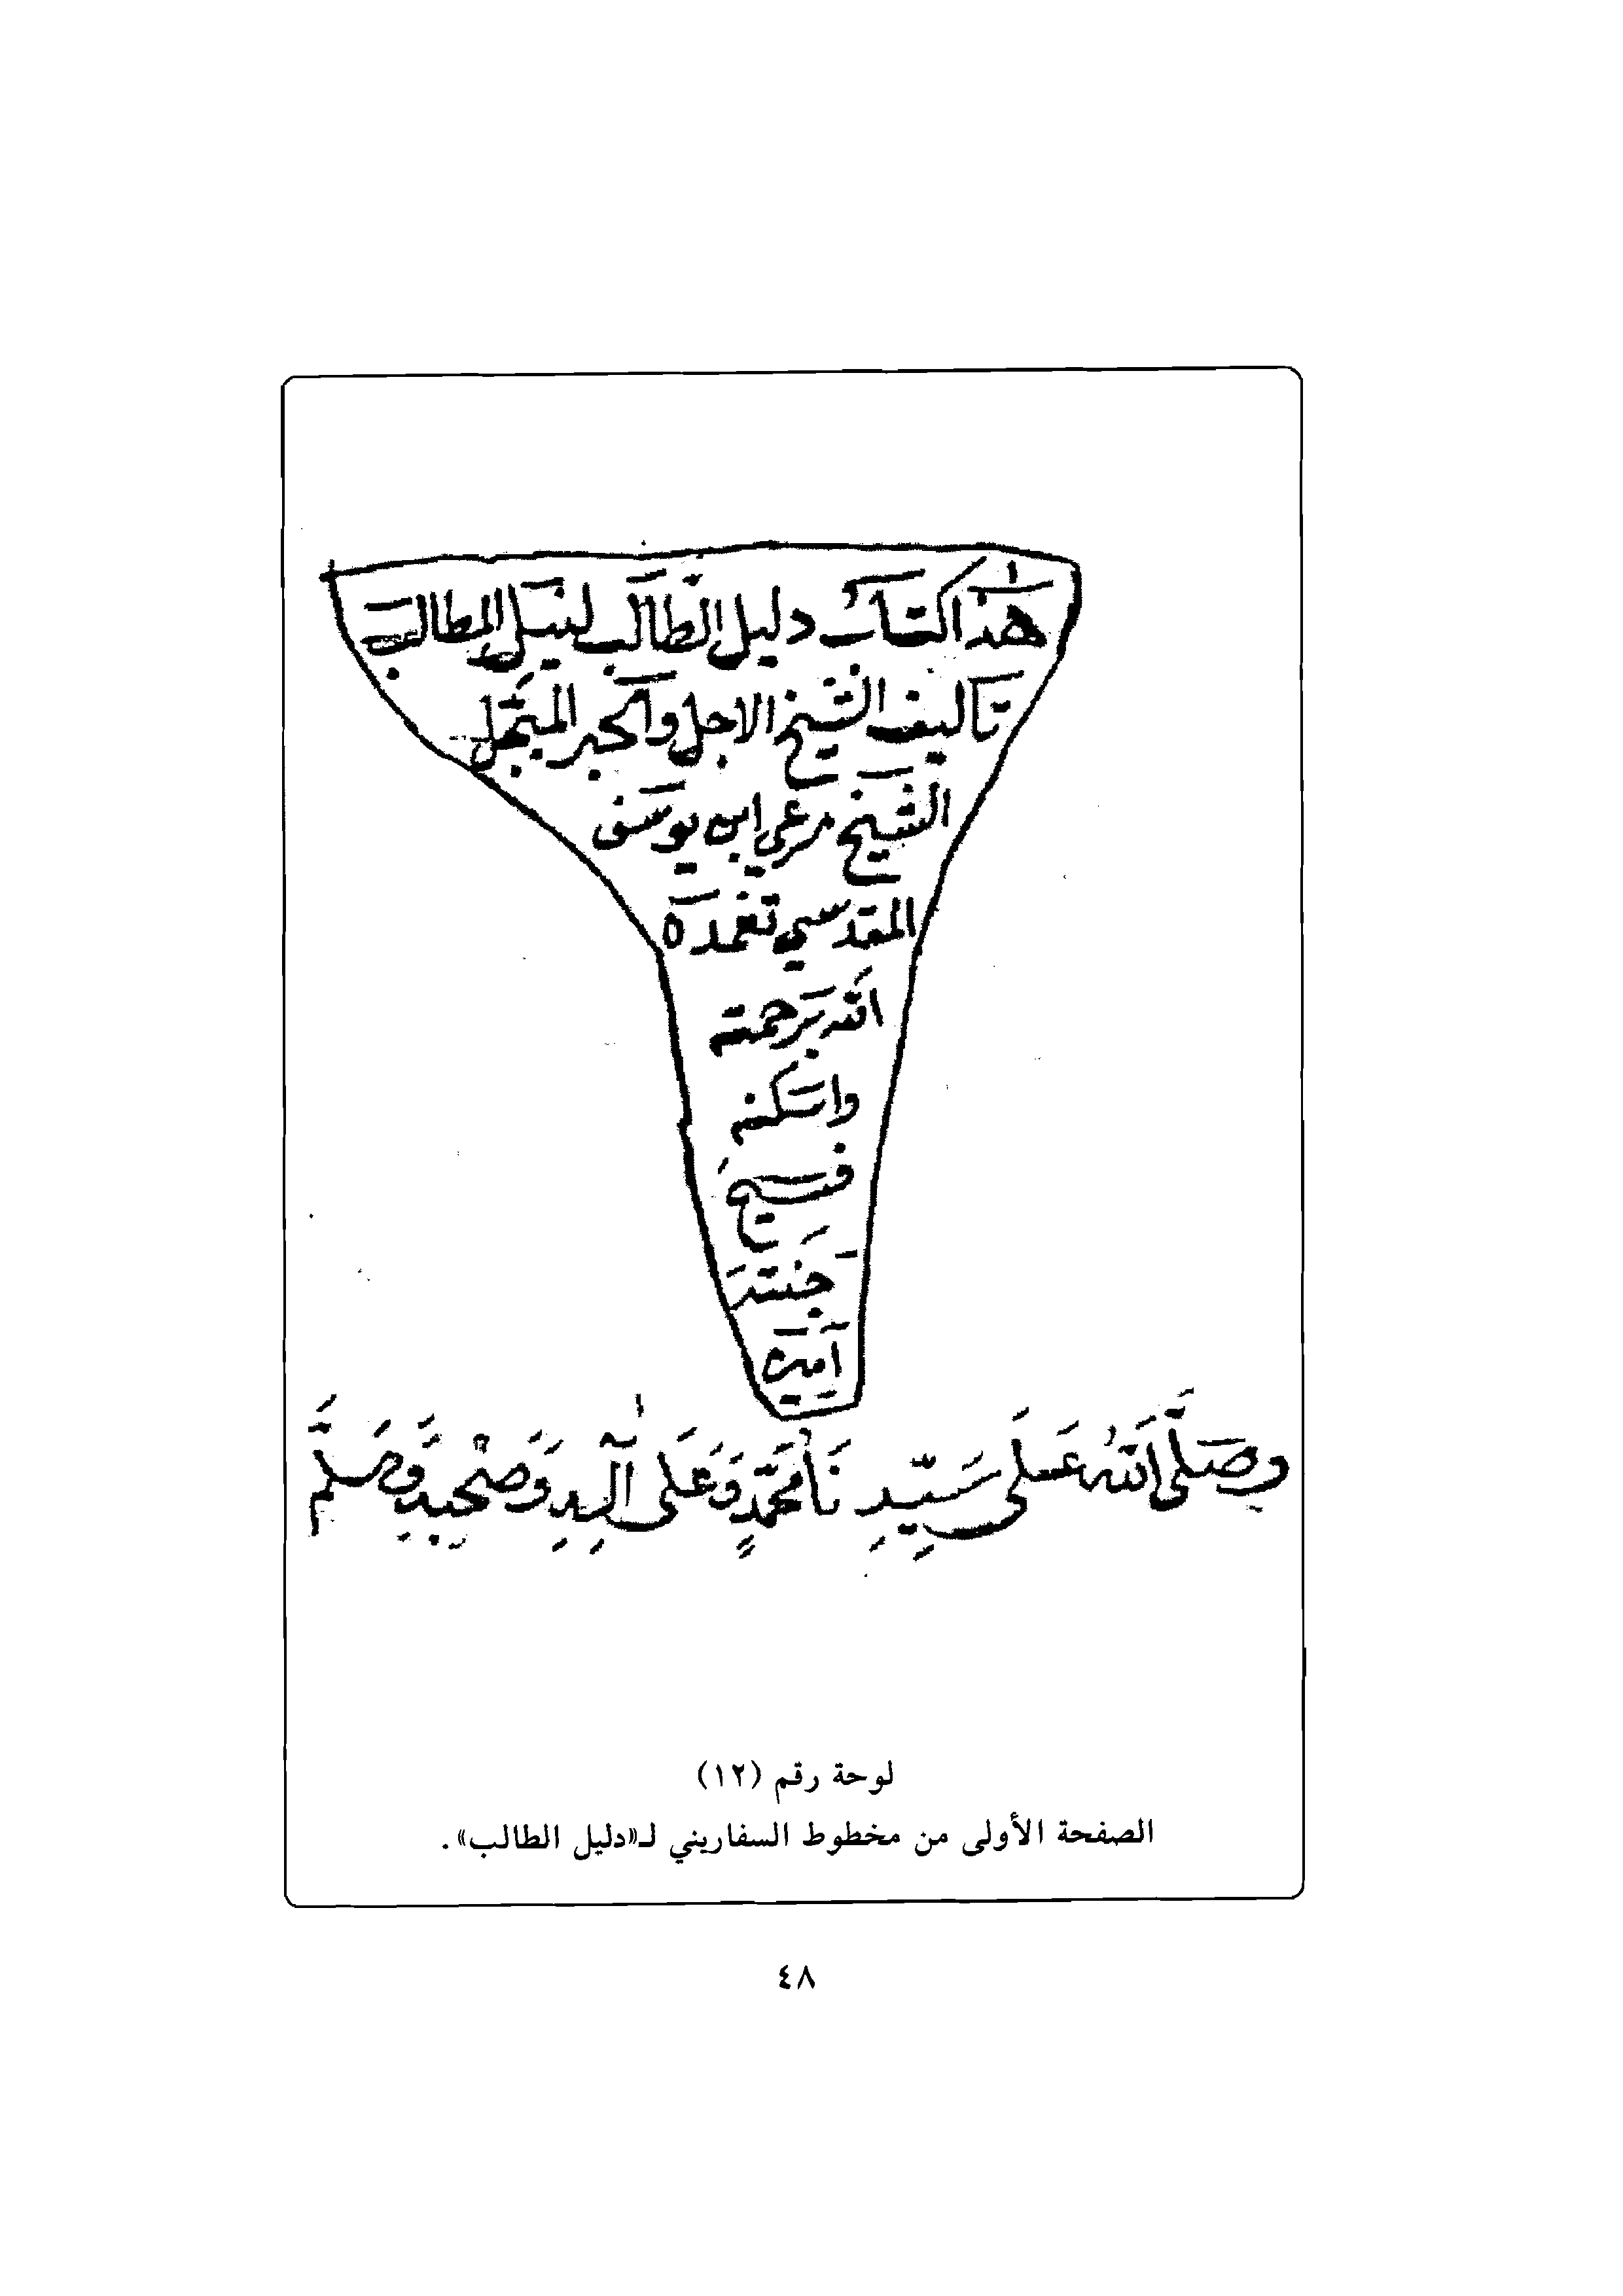 هذا كتاب دليل الطالب لنيل المطالب
تأليف الشيخ الاجل والحبر المبجل
الشيخ مرعي ابن يوسف
المقدسي تغمده
الله برحمته
واسكنه
فسيح
جنته
آمين
وصَلَّى اللهُ عَلَى سَيِّدِنَا مُحَمَّدٍ وَعَلَى آلِهِ وَصَحْبِهِ وَصَلَّم
لوحة رقم (١٢)
الصفحة الأولى من مخطوط السفاريني لـ«دليل الطالب».
٤٨